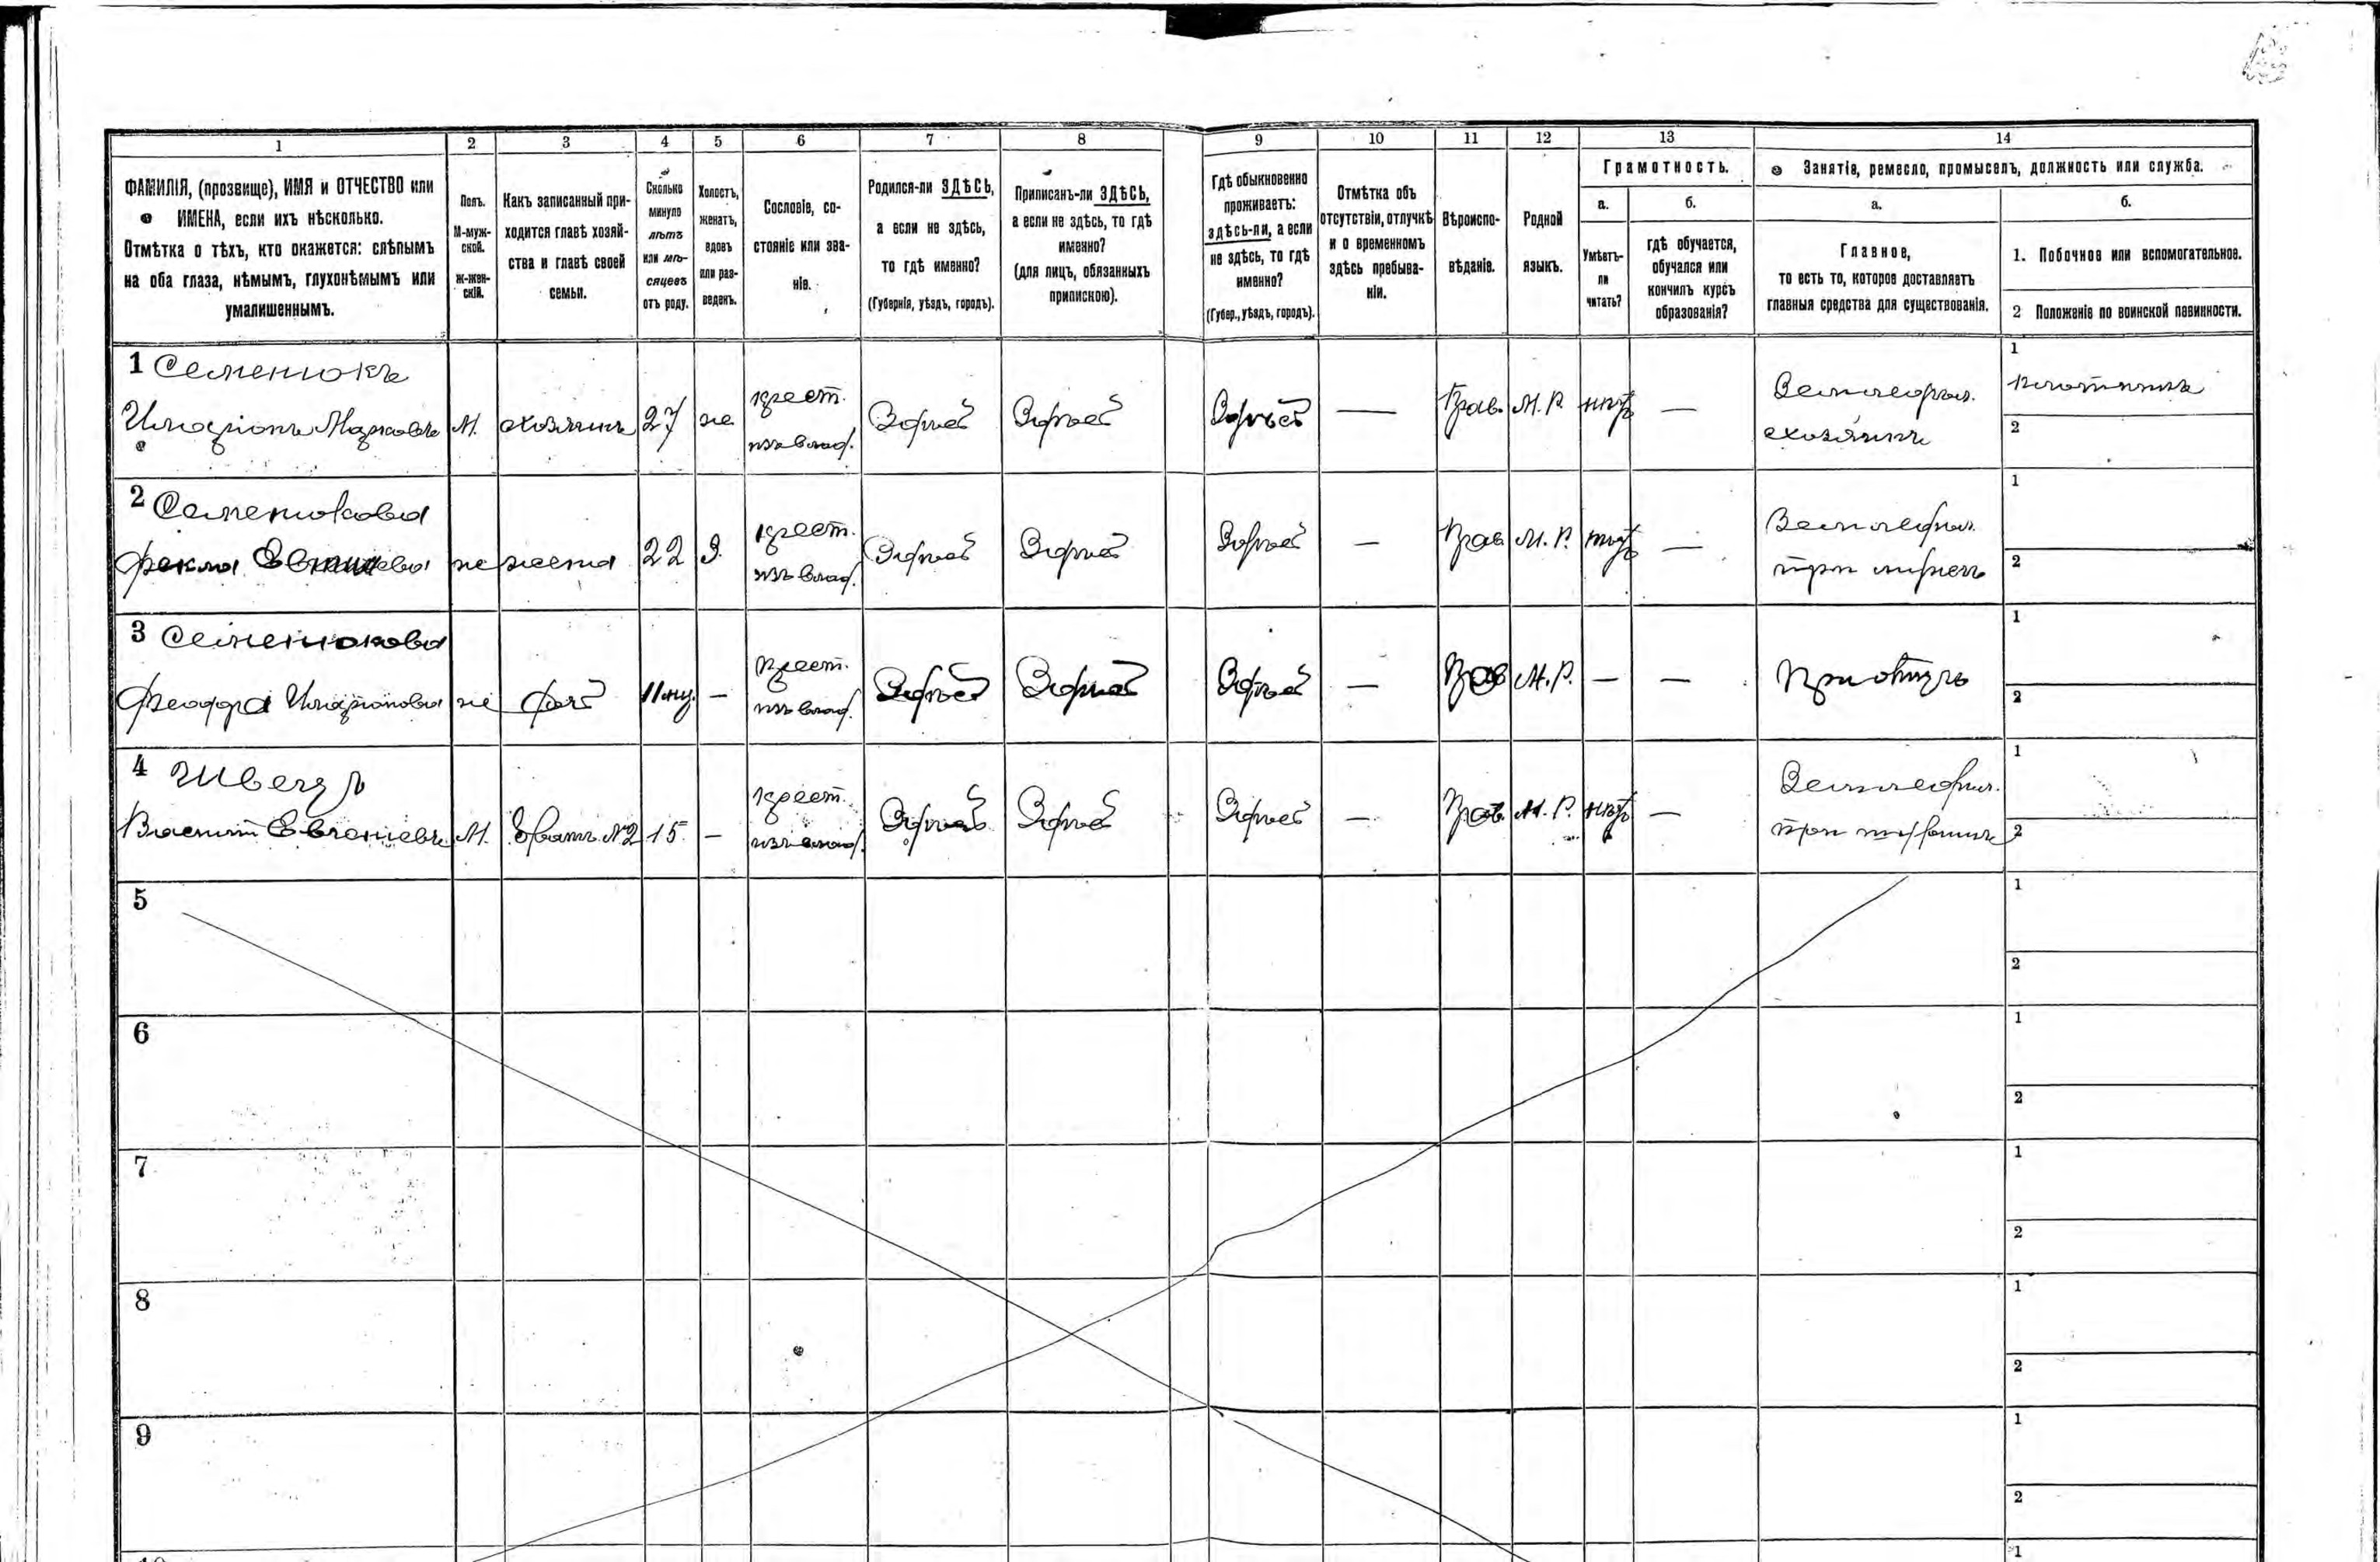 1
2
3
4
5
6
7
8
9
10
11
12
13
14
ФАМИЛІЯ, (прозвище), ИМЯ и ОТЧЕСТВО или
ИМЕНА, если ихъ нѣсколько.
Отмѣтка о тѣхъ, кто окажется: слѣпымъ
на оба глаза, нѣмымъ, глухонѣмымъ или
умалишеннымъ.
Полъ.
М-муж-
ской.
Ж-жен-
скій.
Какъ записанный при-
ходится главѣ хозяй-
ства и главѣ своей
семьи.
Сколько
минуло
лѣтъ
или мѣ-
сяцевъ
отъ роду.
Холостъ,
женатъ,
вдовъ
или раз-
веденъ.
Сословіе, со-
стояніе или зва-
ніе.
Родился-ли ЗДѢСЬ,
а если не здѣсь,
то гдѣ именно?
(Губернія, уѣздъ, городъ).
Приписанъ-ли ЗДѢСЬ,
а если не здѣсь, то гдѣ
именно?
(для лицъ, обязанныхъ
припискою).
Гдѣ обыкновенно
проживаетъ:
здѣсь-ли, а если
не здѣсь, то гдѣ
именно?
(Губер., уѣздъ, городъ).
Отмѣтка объ
отсутствіи, отлучкѣ
и о временномъ
здѣсь пребыва-
ніи.
Вѣроиспо-
вѣданіе.
Родной
языкъ.
Грамотность.
а.
Умѣетъ-
ли
читать?
б.
гдѣ обучается,
обучался или
кончилъ курсъ
образованія?
Занятія, ремесло, промыселъ, должность или служба.
а.
Главное,
то есть то, которое доставляетъ
главныя средства для существованія.
б.
1. Побочное или вспомогательное.
2 Положеніе по воинской повинности.
1 Семенюкъ
Иларіонъ Марковъ
М.
хозяинъ
27
ж.
крест.
изъ влад.
Здѣсь
Здѣсь
Здѣсь
—
Прав.
М. Р.
нѣтъ
—
Землед.
хозяинъ
1
плотникъ
2
2 Семенюкова
Фекла
ж
жена
22
З.
крест.
изъ влад.
Здѣсь
Здѣсь
Здѣсь
—
Прав.
М. Р.
нѣтъ
—
Землед.
при мужѣ
1
2
3 Семенюкова
Феодора Иларіонова
ж
дочь
11 мц.
—
крест.
изъ влад.
Здѣсь
Здѣсь
Здѣсь
—
Прав
М. Р.
—
—
При отцѣ
1
2
4 Швецъ
Василій
М.
братъ №2
15
—
крест.
изъ влад.
Здѣсь
Здѣсь
Здѣсь
—
Прав.
М. Р.
нѣтъ
—
Землед.
при
1
2
5
1
2
6
1
2
7
1
2
8
1
2
9
1
2
10
1